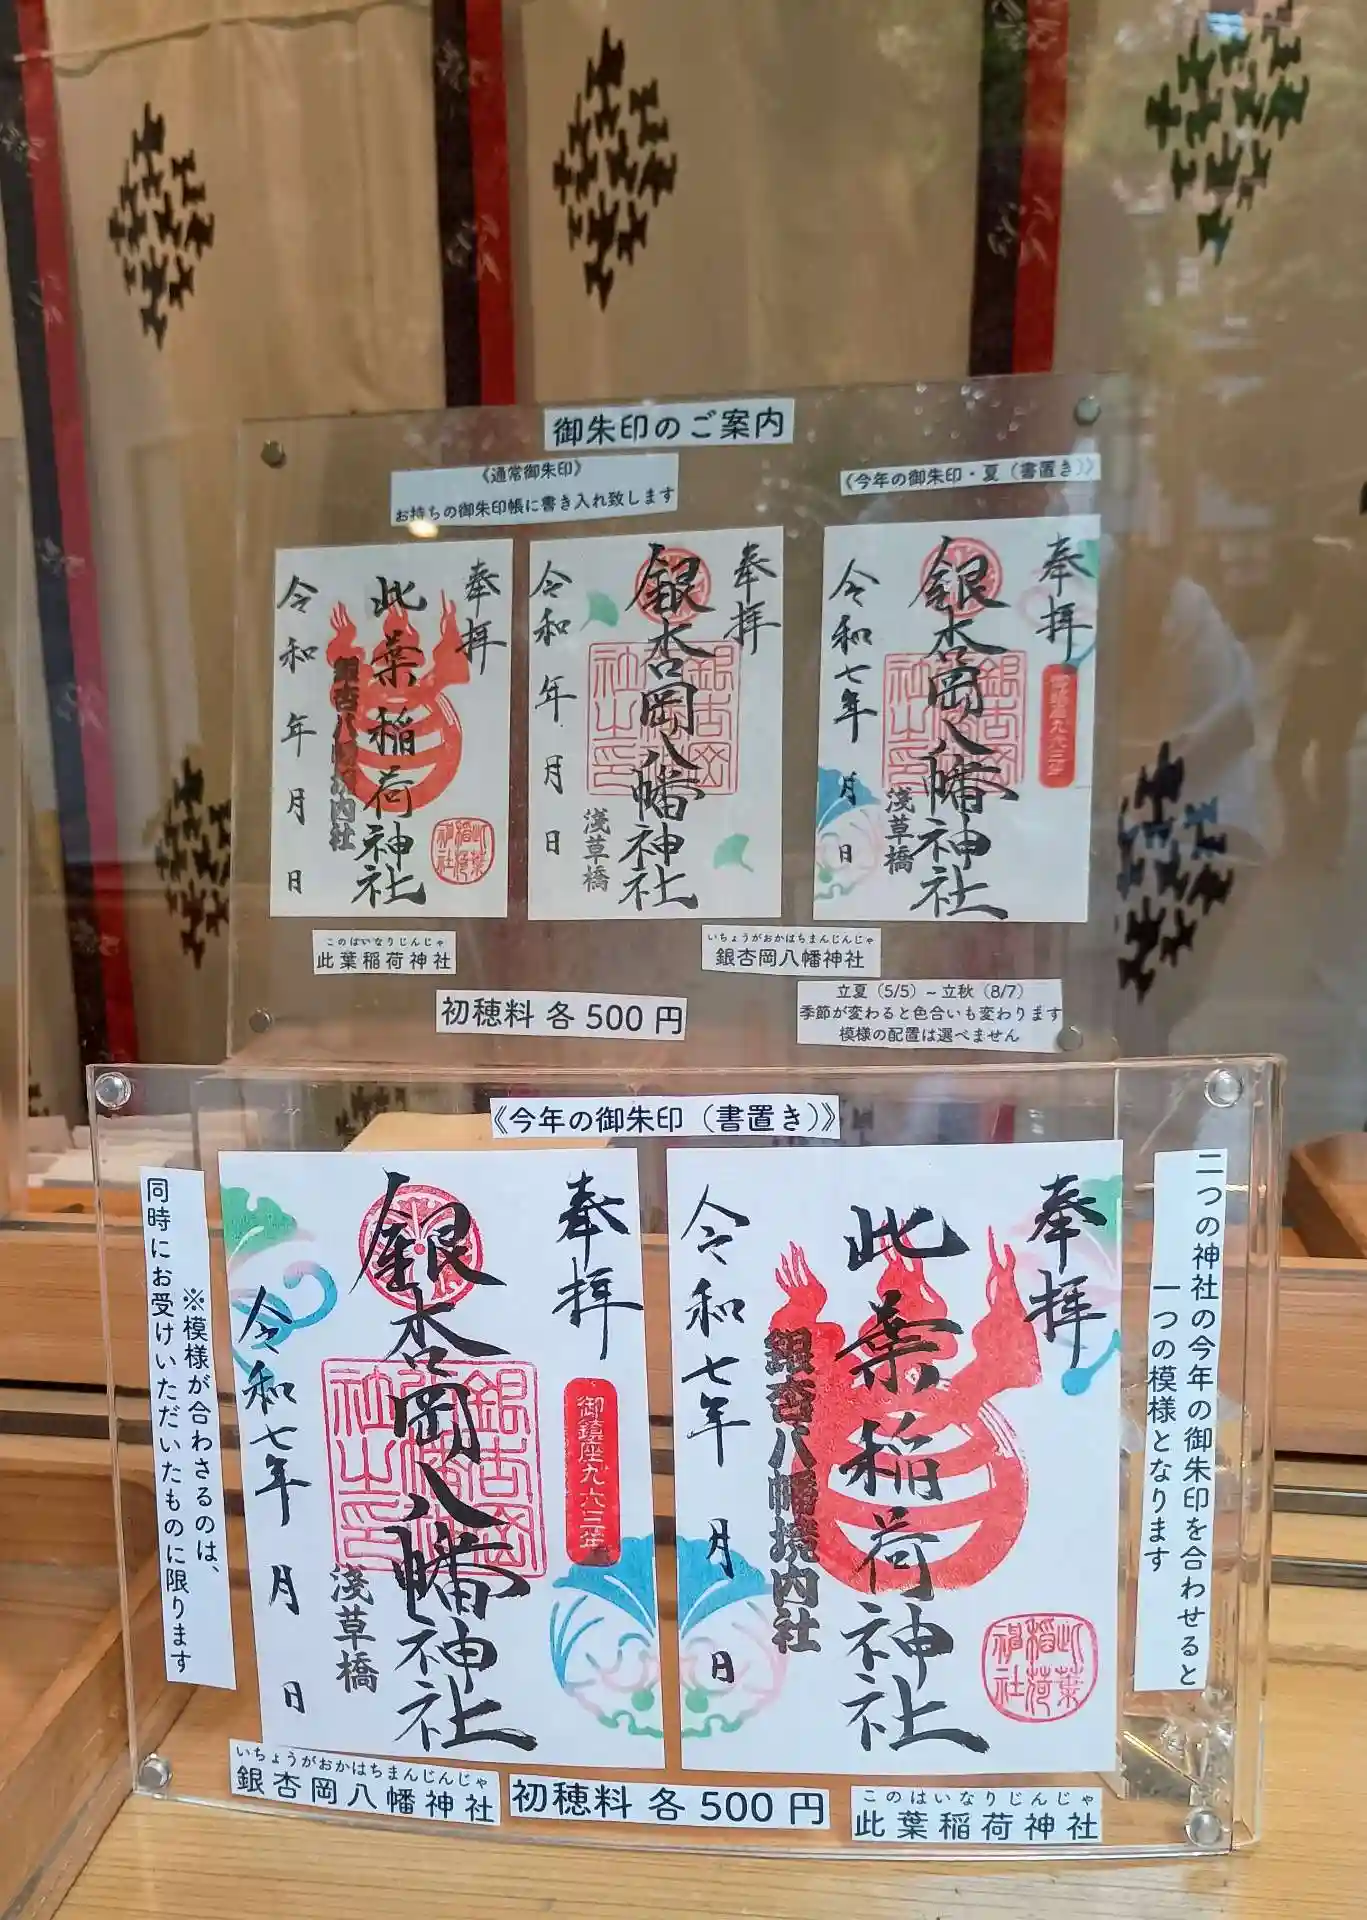 御朱印のご案内
《通常御朱印》
お持ちの御朱印帳に書き入れ致します
《今年の御朱印・夏（書置き）》
奉拝
此葉稲荷神社
銀杏八幡境内社
令和 年 月 日
奉拝
銀杏岡八幡神社
浅草橋
令和 年 月 日
奉拝
銀杏岡八幡神社
浅草橋
令和七年 月 日
このはいなりじんじゃ
此葉稲荷神社
いちょうがおかはちまんじんじゃ
銀杏岡八幡神社
初穂料 各 500 円
立夏（5/5）~ 立秋（8/7）
季節が変わると色合いも変わります
模様の配置は選べません
《今年の御朱印（書置き）》
二つの神社の今年の御朱印を合わせると
一つの模様となります
奉拝
此葉稲荷神社
銀杏八幡境内社
令和七年 月 日
奉拝
御鎮座九六三年
銀杏岡八幡神社
淺草橋
令和七年 月 日
※模様が合わさるのは、
同時にお受けいただいたものに限ります
いちょうがおかはちまんじんじゃ
銀杏岡八幡神社
初穂料 各 500 円
このはいなりじんじゃ
此葉稲荷神社